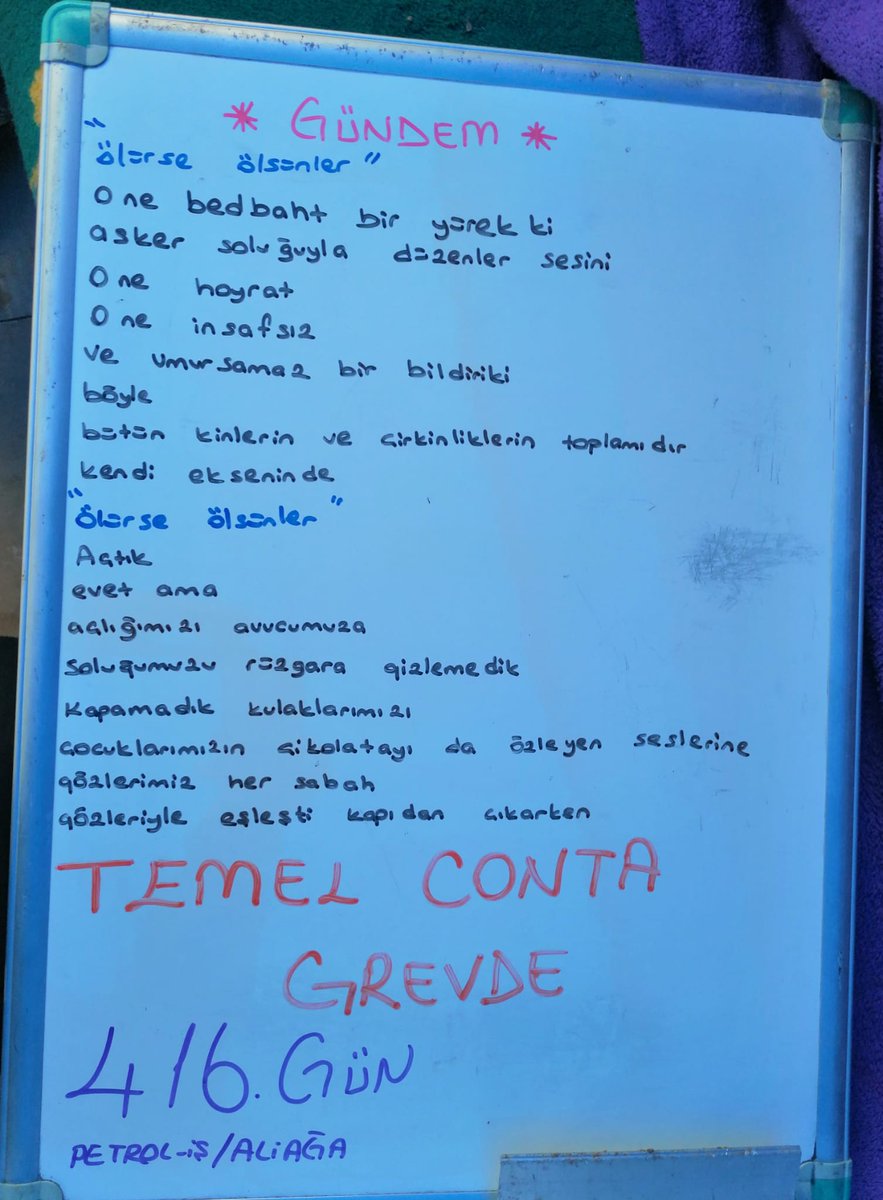 * GÜNDEM *
"ölürse ölsünler"
O ne bedbaht bir yürek ki
asker soluğuyla düzenler sesini
O ne hoyrat
O ne insafsız
ve umursamaz bir bildiriki
böyle
bütün kinlerin ve çirkinliklerin toplamıdır
kendi ekseninde
"ölürse ölsünler"
Açtık
evet ama
açlığımızı avucumuza
soluğumuzu rüzgara gizlemedik
kapamadık kulaklarımızı
çocuklarımızın çikolatayı da özleyen seslerine
gözlerimiz her sabah
gözleriyle eşleşti kapıdan çıkarken
TEMEL CONTA
GREVDE
416. GÜN
PETROL-İŞ/ALİAĞA